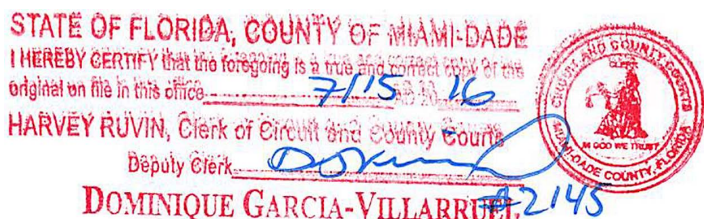 STATE OF FLORIDA, COUNTY OF MIAMI-DADE
I HEREBY CERTIFY that the foregoing is a true and correct copy of the
original on file in this office 7/15 AD 20 16
HARVEY RUVIN, Clerk of Circuit and County Courts
Deputy Clerk
DOMINIQUE GARCIA-VILLARRUEL #2145
CIRCUIT AND COUNTY COURTS
IN GOD WE TRUST
MIAMI-DADE COUNTY, FLORIDA